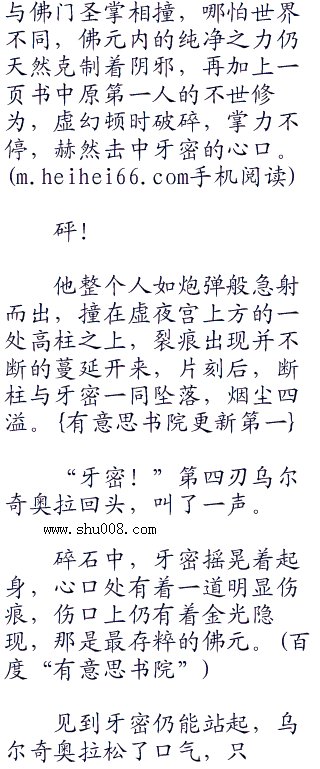 与佛门圣掌相撞，哪怕世界
不同，佛元内的纯净之力仍
天然克制着阴邪，再加上一
页书中原第一人的不世修
为，虚幻顿时破碎，掌力不
停，赫然击中牙密的心口。
(m.heihei66.com手机阅读)
砰！
他整个人如炮弹般急射
而出，撞在虚夜宫上方的一
处高柱之上，裂痕出现并不
断的蔓延开来，片刻后，断
柱与牙密一同坠落，烟尘四
溢。{有意思书院更新第一}
“牙密！”第四刃乌尔
奇奥拉回头，叫了一声。
www.shu008.com
碎石中，牙密摇晃着起
身，心口处有着一道明显伤
痕，伤口上仍有着金光隐
现，那是最存粹的佛元。(百
度“有意思书院”)
见到牙密仍能站起，乌
尔奇奥拉松了口气，只